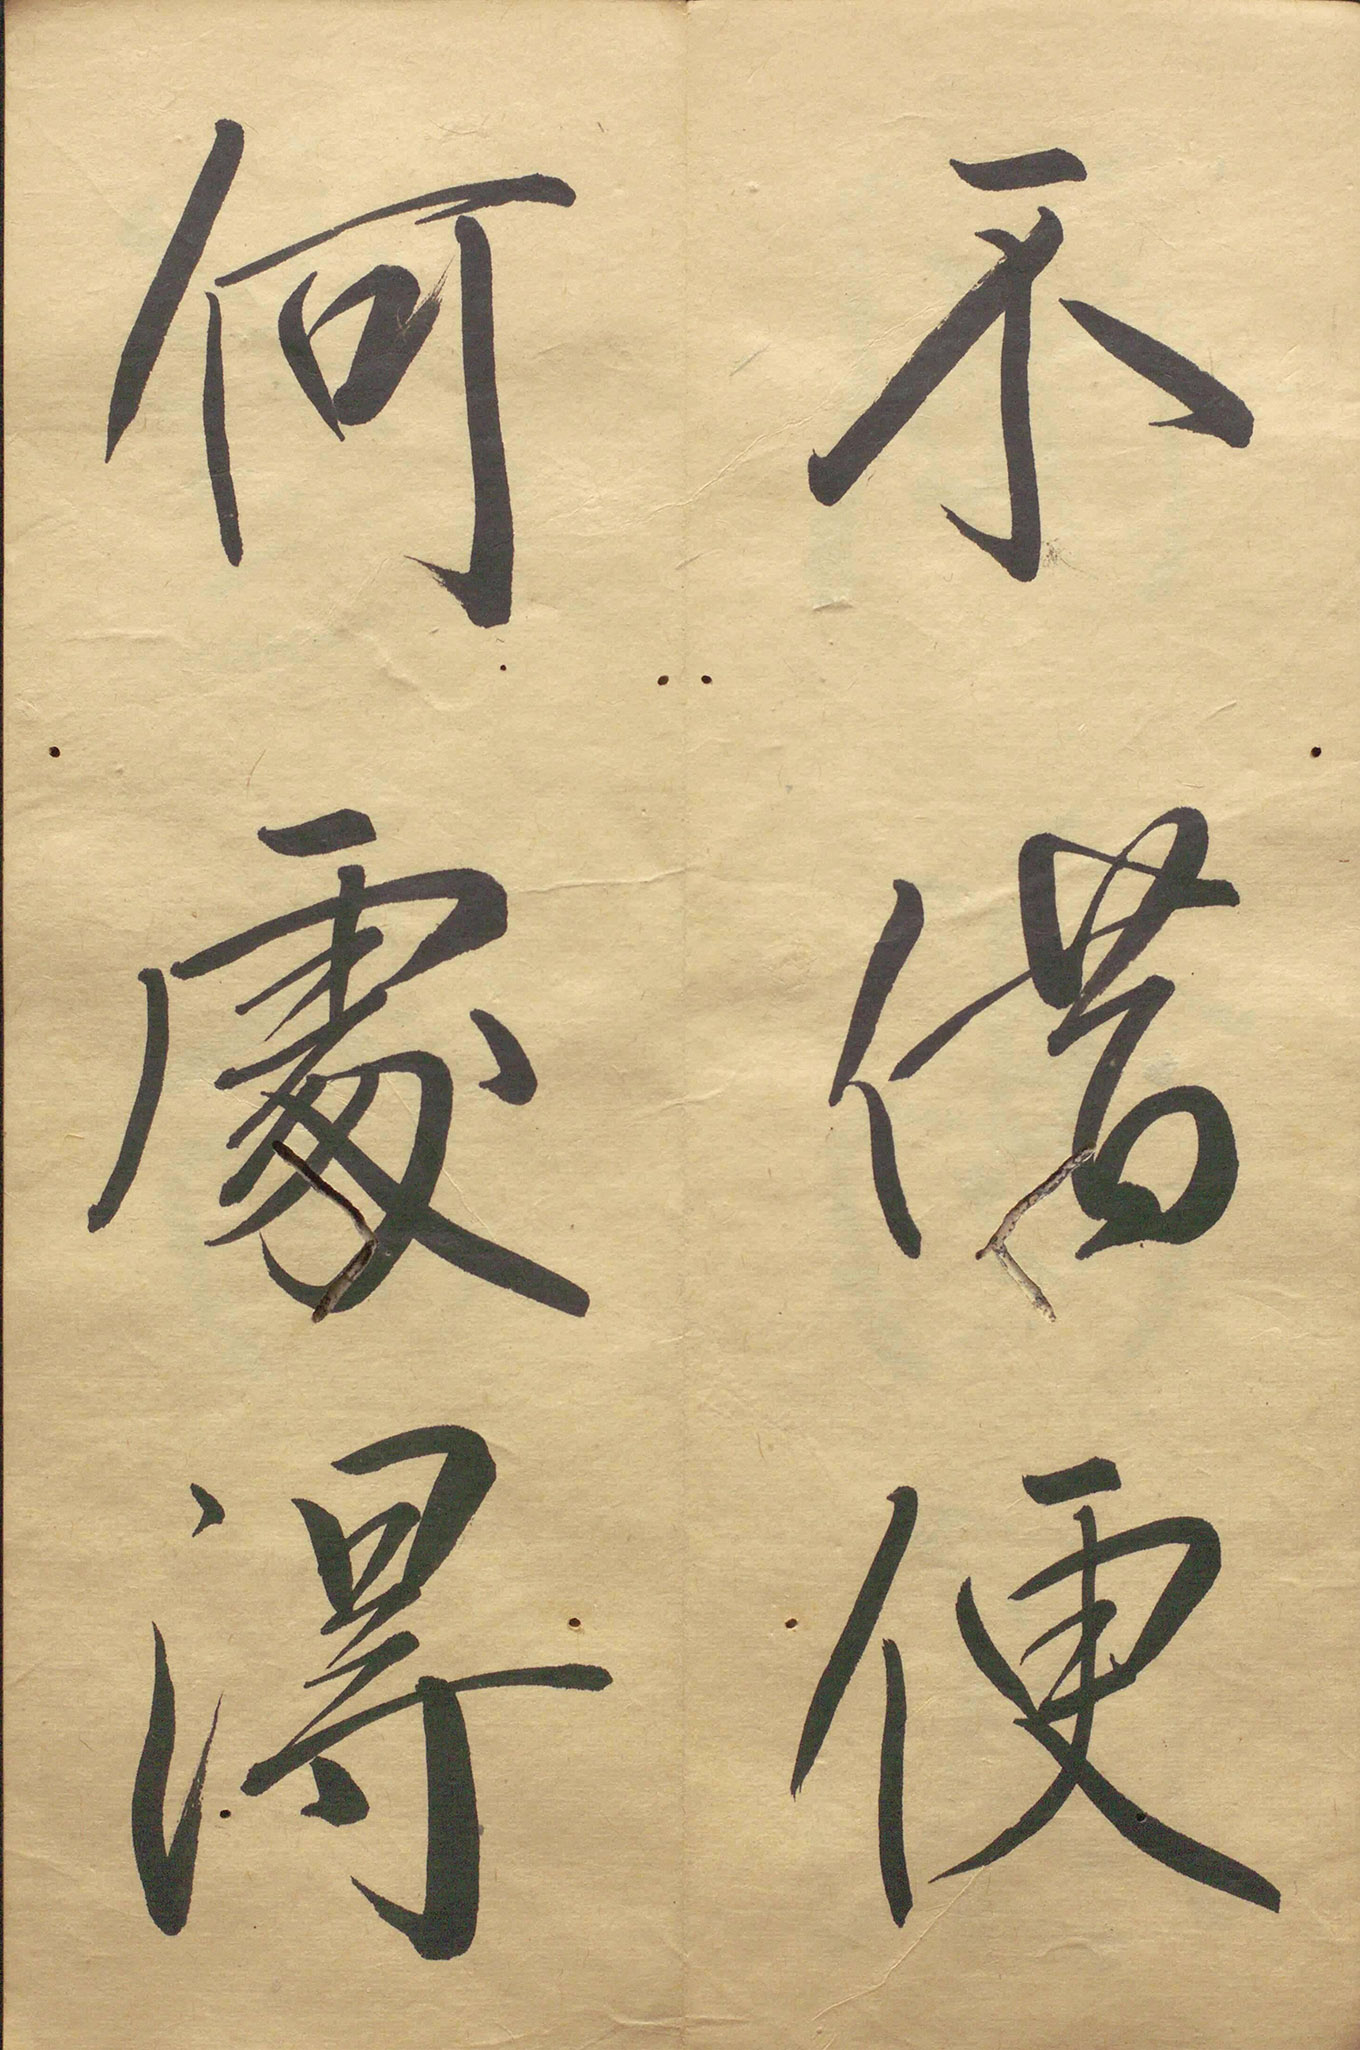 不借便
何處得